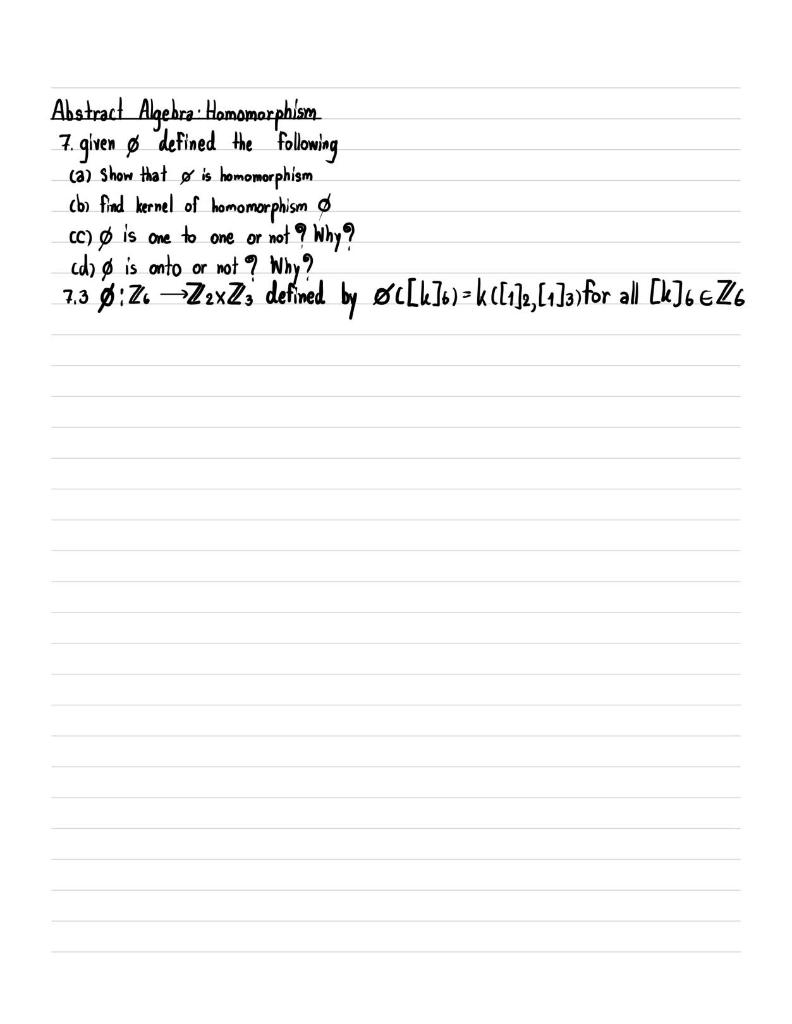 Abstract Algebra: Homomorphism
7. given ø defined the following
(a) Show that ø is homomorphism
(b) find kernel of homomorphism ø
(c) ø is one to one or not? Why?
(d) ø is onto or not? Why?
7.3 ø: ℤ₆ → ℤ₂×ℤ₃ defined by ø([k]₆) = k([1]₂,[1]₃) for all [k]₆ ∈ ℤ₆